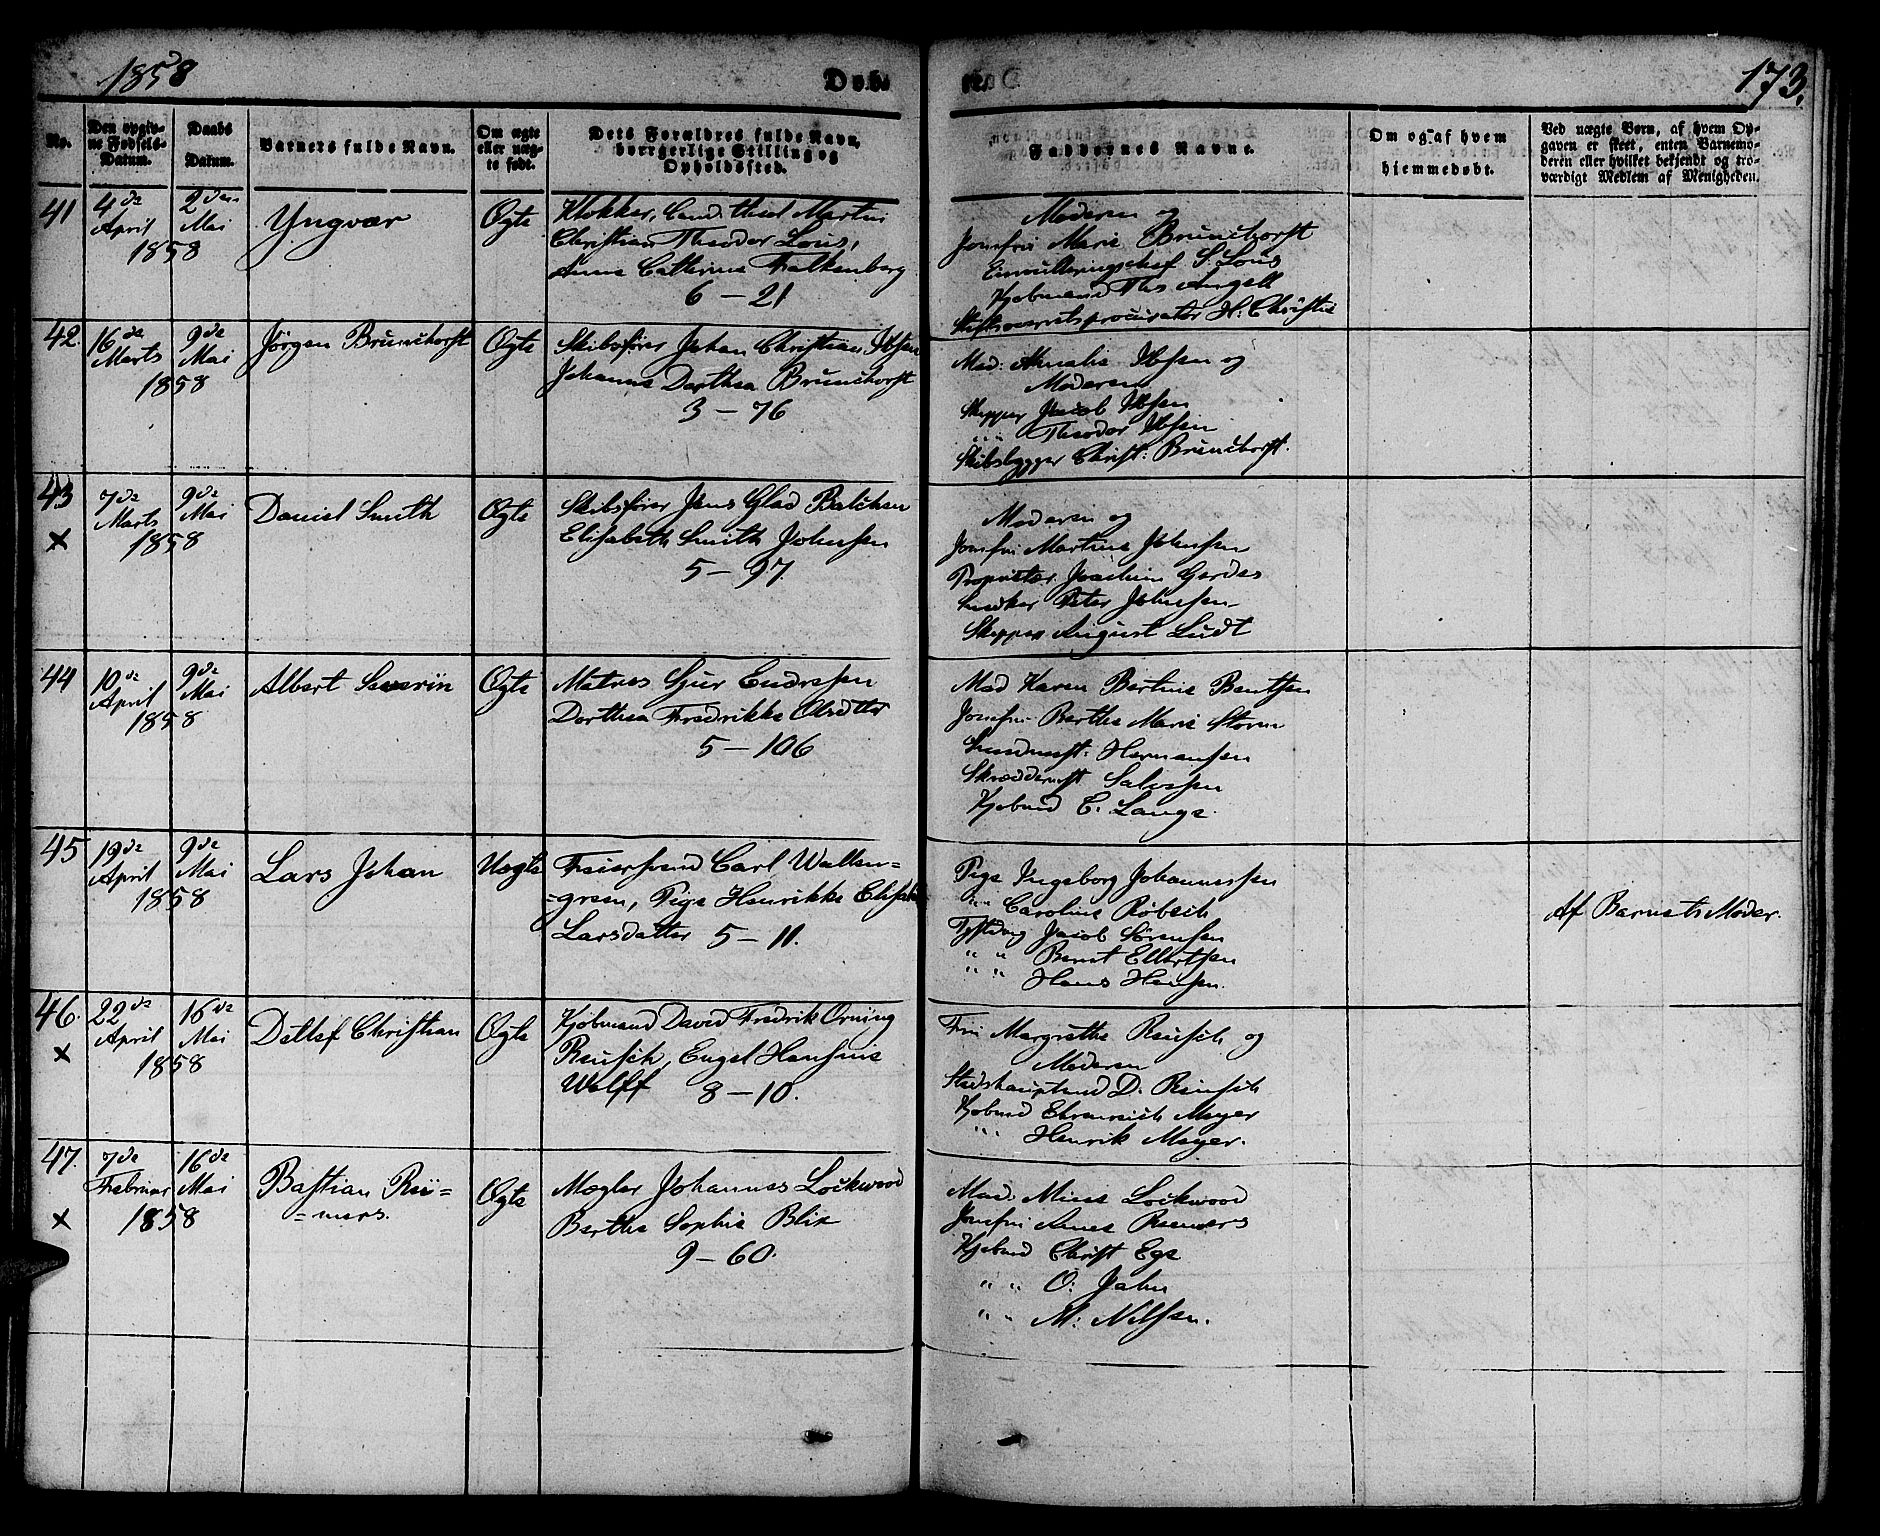 1858
Døbte.
173.
No.
Den opgivne Fødsels-Datum.
Daabs Datum.
Barnets fulde Navn.
Om ægte eller uægte født.
Dets Forældres fulde Navn, borgerlige Stilling og Opholdssted.
Faddernes Navne.
Om og af hvem hjemmedøbt.
Ved uægte Børn, af hvem Op-
gaven er skeet, enten Barnemo-
deren eller hvilket bekjendt og tro-
værdigt Medlem af Menigheden.
41
4de April 1858
2den Mai
Yngvar
Ægte
Klokker, Cand. theol Martin
Christian Theodor Lous,
Anna Catherine Falkenberg
6 – 21
Moderen og
Jomfru Marie Brunchorst
Einroulleringschef S. Lous
Kjøbmand Ths Angell
Stiftsoverretsprocurator H. Christie
42.
16de Marts 1858
9de Mai
Jørgen Brunchorst
Ægte
Skibsfører Johan Christian Ibsen
Johanne Dorthea Brunchorst
3 – 76
Mad. Amalie Ibsen og
Moderen
Skipper Jacob Ibsen
" " " Theodor Ibsen
Skibsbygger Christ: Brunchorst.
43
x
7de Marts 1858
9de Mai
Daniel Smith
Ægte
Skibsfører Jens Glad Balchen
Elisabeth Smith Johnsen
5 – 97.
Moderen og
Jomfru Martine Johnsen
Proprietær Joachim Gerdes
Peter Johnsen
Skipper August Ludt
44
10de April 1858
9de Mai
Albert Severin
Ægte
Matros Sjur Endresen
Dorthea Fredrikke Olsdtter
5 – 106
Mad Karen Bertine Bentsen
Jomfru Berthe Marie Storm
Hermansen
Skræddermst Salvesen
Kjøbmd C. Lange.
45
19de April 1858
9de Mai
Lars Johan
Uægte
Feiersvend Carl Wallen=
=green, Pige Henrikke Elisabeth
Larsdatter 5 – 11.
Pige Ingeborg Johannessen
" " Caroline Røbech
Jacob Sørensen
" " Bernt Ellertsen
" " Hans Hansen.
Af Barnets Moder.
46.
x
22de April 1858
16de Mai
Detlef Christian
Ægte
Kjøbmand David Fredrik Orning
Reusch, Engel Hansine
Wolff 8 – 10.
Fru Margrethe Reusch og
Moderen
Stadshauptmd D. Reusch
Kjøbmd Ehrenreich Meyer
" " Henrik Meyer.
47.
x
7de Februar 1858
16de Mai
Bastian Rei=
=mers.
Ægte
Mægler Johannes Lockwood
Berthe Sophie Blix
9 – 60.
Mad. Mine Lockwood
Jomfru Anne Reimers
Kjøbmd Christ Ege
" " O. Jahn
" " M: Nilsen.